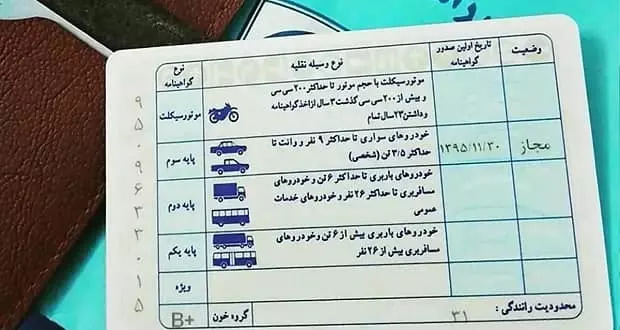 وضعیت
تاریخ اولین صدور گواهینامه
نوع وسیله نقلیه
نوع گواهینامه
موتورسیکلت با حجم موتور تا حداکثر ۲۰۰ سی سی
و بیش از ۲۰۰ سی سی گذشت ۳ سال از اخذ گواهینامه
وداشتن ۲۳ سال تمام
موتورسیکلت
مجاز
۱۳۹۵/۱۱/۳۰
خودروهای سواری تا حداکثر ۹ نفر و وانت تا
حداکثر ۳/۵ تن (شخصی)
پایه سوم
خودروهای باربری تا حداکثر ۶ تن و خودروهای
مسافربری تا حداکثر ۲۶ نفر و خودروهای خدمات
عمومی
پایه دوم
خودروهای باربری بیش از ۶ تن و خودروهای
مسافربری بیش از ۲۶ نفر
پایه یکم
ویژه
محدودیت رانندگی : ۳۱
گروه خون
B+
۹
۵
۰
۹
۶
۳
۳
۰
۱
۵